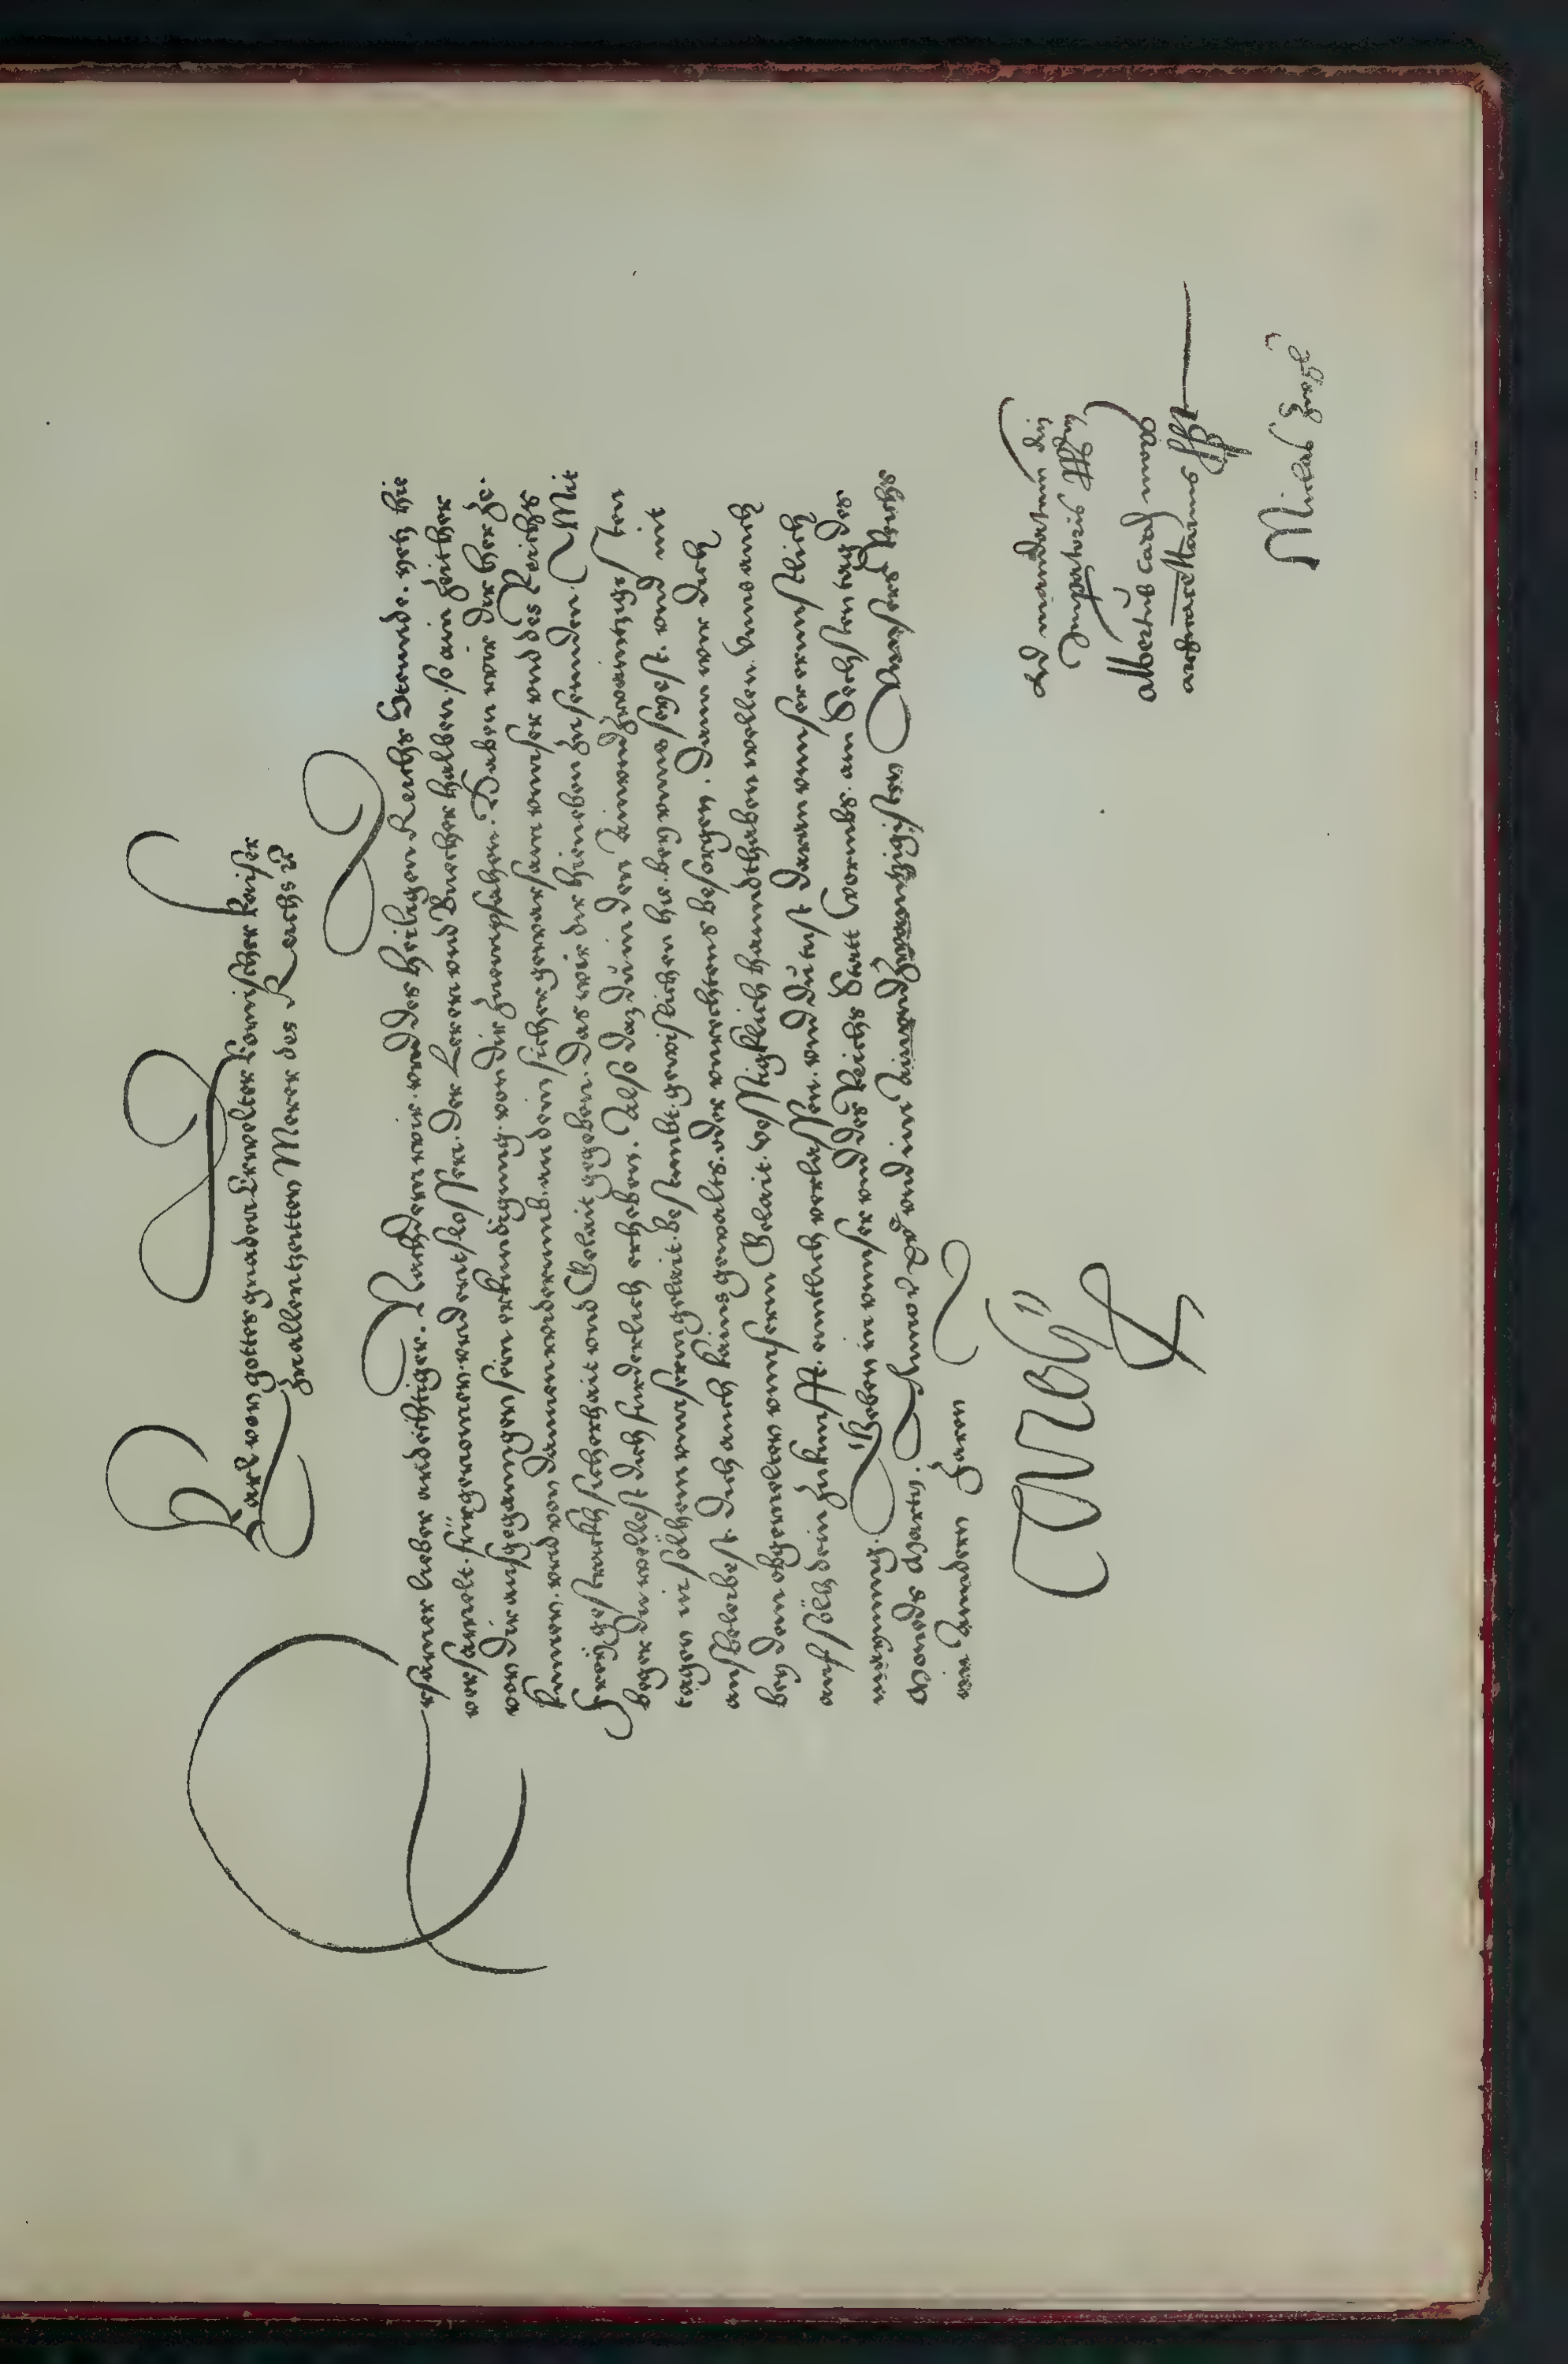 Karl von gottes gnaden Erwelter Romischer Kaiser
zuallenntzeitten Merer des Reichs ꝛc
Ersamer lieber andechtiger. Nachdem wir. vnnd des heiligen Reichs Stennde. yetz hie
versamelt. furgenomen. vnd entslossen. der Leren vnd Buecher halben. so ain zeither
von dir ausgegangen sein erkundigung. von dir zuempfahen. Haben wir dir her ze.
kumen. vnd von dannen widerumb. an dein sicher gewarsam vnnser vnd des Reichs
Freÿ gestrackh sicherhait vnd Gelait gegeben. Das wir dir hieneben zusennden. Mit
beger du wellest dich furderlich erheben. Also daz du in den Ainundzwaintzigesten
tagen in sölhem vnnserm gelait. bestimbt. gewislichen hie. bey vnns seyest. vnd nit
aussbeleibest. Dich auch kains gewalts. oder vnrechtens besorgen. Dann wir dich
bey dem obgemelten vnnserm Gelait. vesstigklich hanndthaben wellen. Vnns auch
auf sölh dein zukunfft. enntlich verlassen. vnd Du tust daran vnnser ernnstlich
maynung. Geben in vnnser vnd des Reichs Statt Wormbs. am Sechsten tag des
Monets Marty. Anno ꝛc vnd im Ainundzwaintzigisten Vnnsers Reichs
im Anndern Jaren
Carolus
Ad mandatum dni
Imperatoris ppm
Albertus card mog
archicancellarius sst
Niclas Zwyl